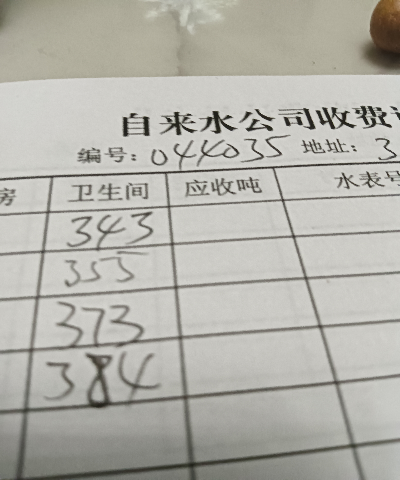 自来水公司收费
编号: 044035 地址: 3
房 卫生间 应收吨 水表号
343
355
373
384